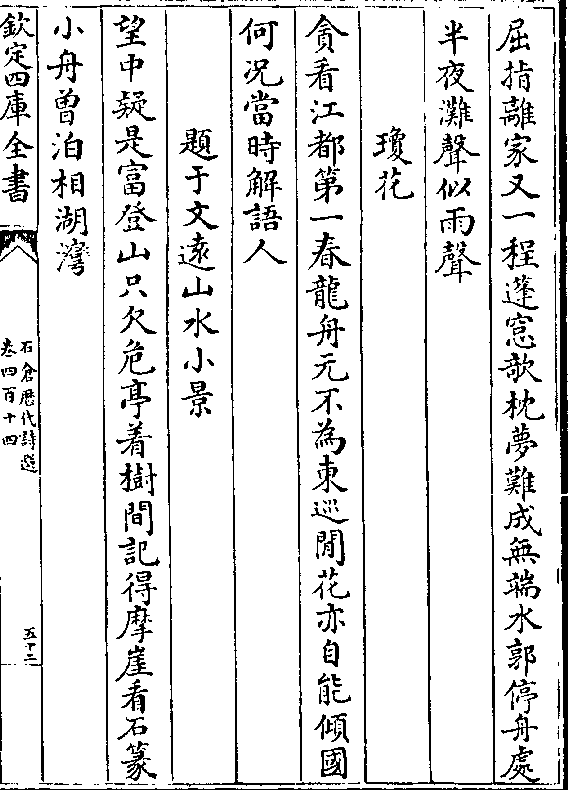 屈指離家又一程蓬窓欹枕夢難成無端水郭停舟處
半夜灘聲似雨聲
瓊花
貪看江都第一春龍舟元不為東巡閒花亦自能傾國
何况當時解語人
題于文逺山水小景
望中疑是富登山只欠危亭着樹間記得摩崖看石篆
小舟曽泊相湖灣
欽定四庫全書
石倉厯代詩選
卷四百十四
五十二